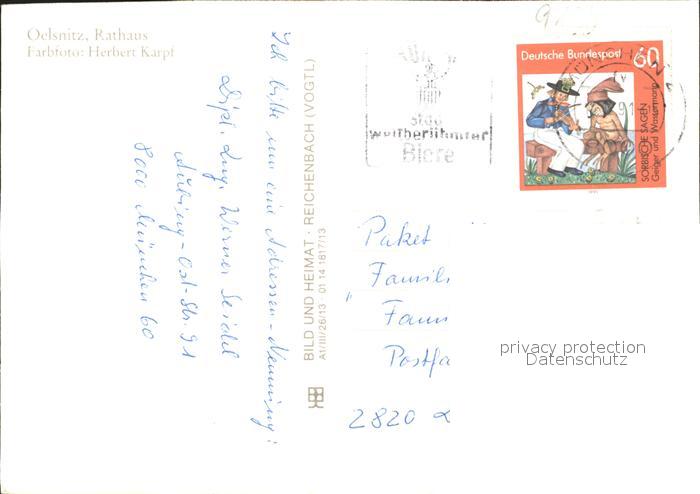 Oelsnitz, Rathaus
Farbfoto: Herbert Karpf
Ich bitte um eine Adressen-Nennung!
Dipl. Ing. Werner Seidel
Aubing-Ost-Str. 91
8000 München 60
BILD UND HEIMAT · REICHENBACH (VOGTL)
A1/III/26/13 01 14 1617/13
weltberühmter
Biere
Deutsche Bundespost 60
SORBISCHE SAGEN
Geiger und Wassermann
Paket
Famili
Fam
Postfa
2820
privacy protection
Datenschutz